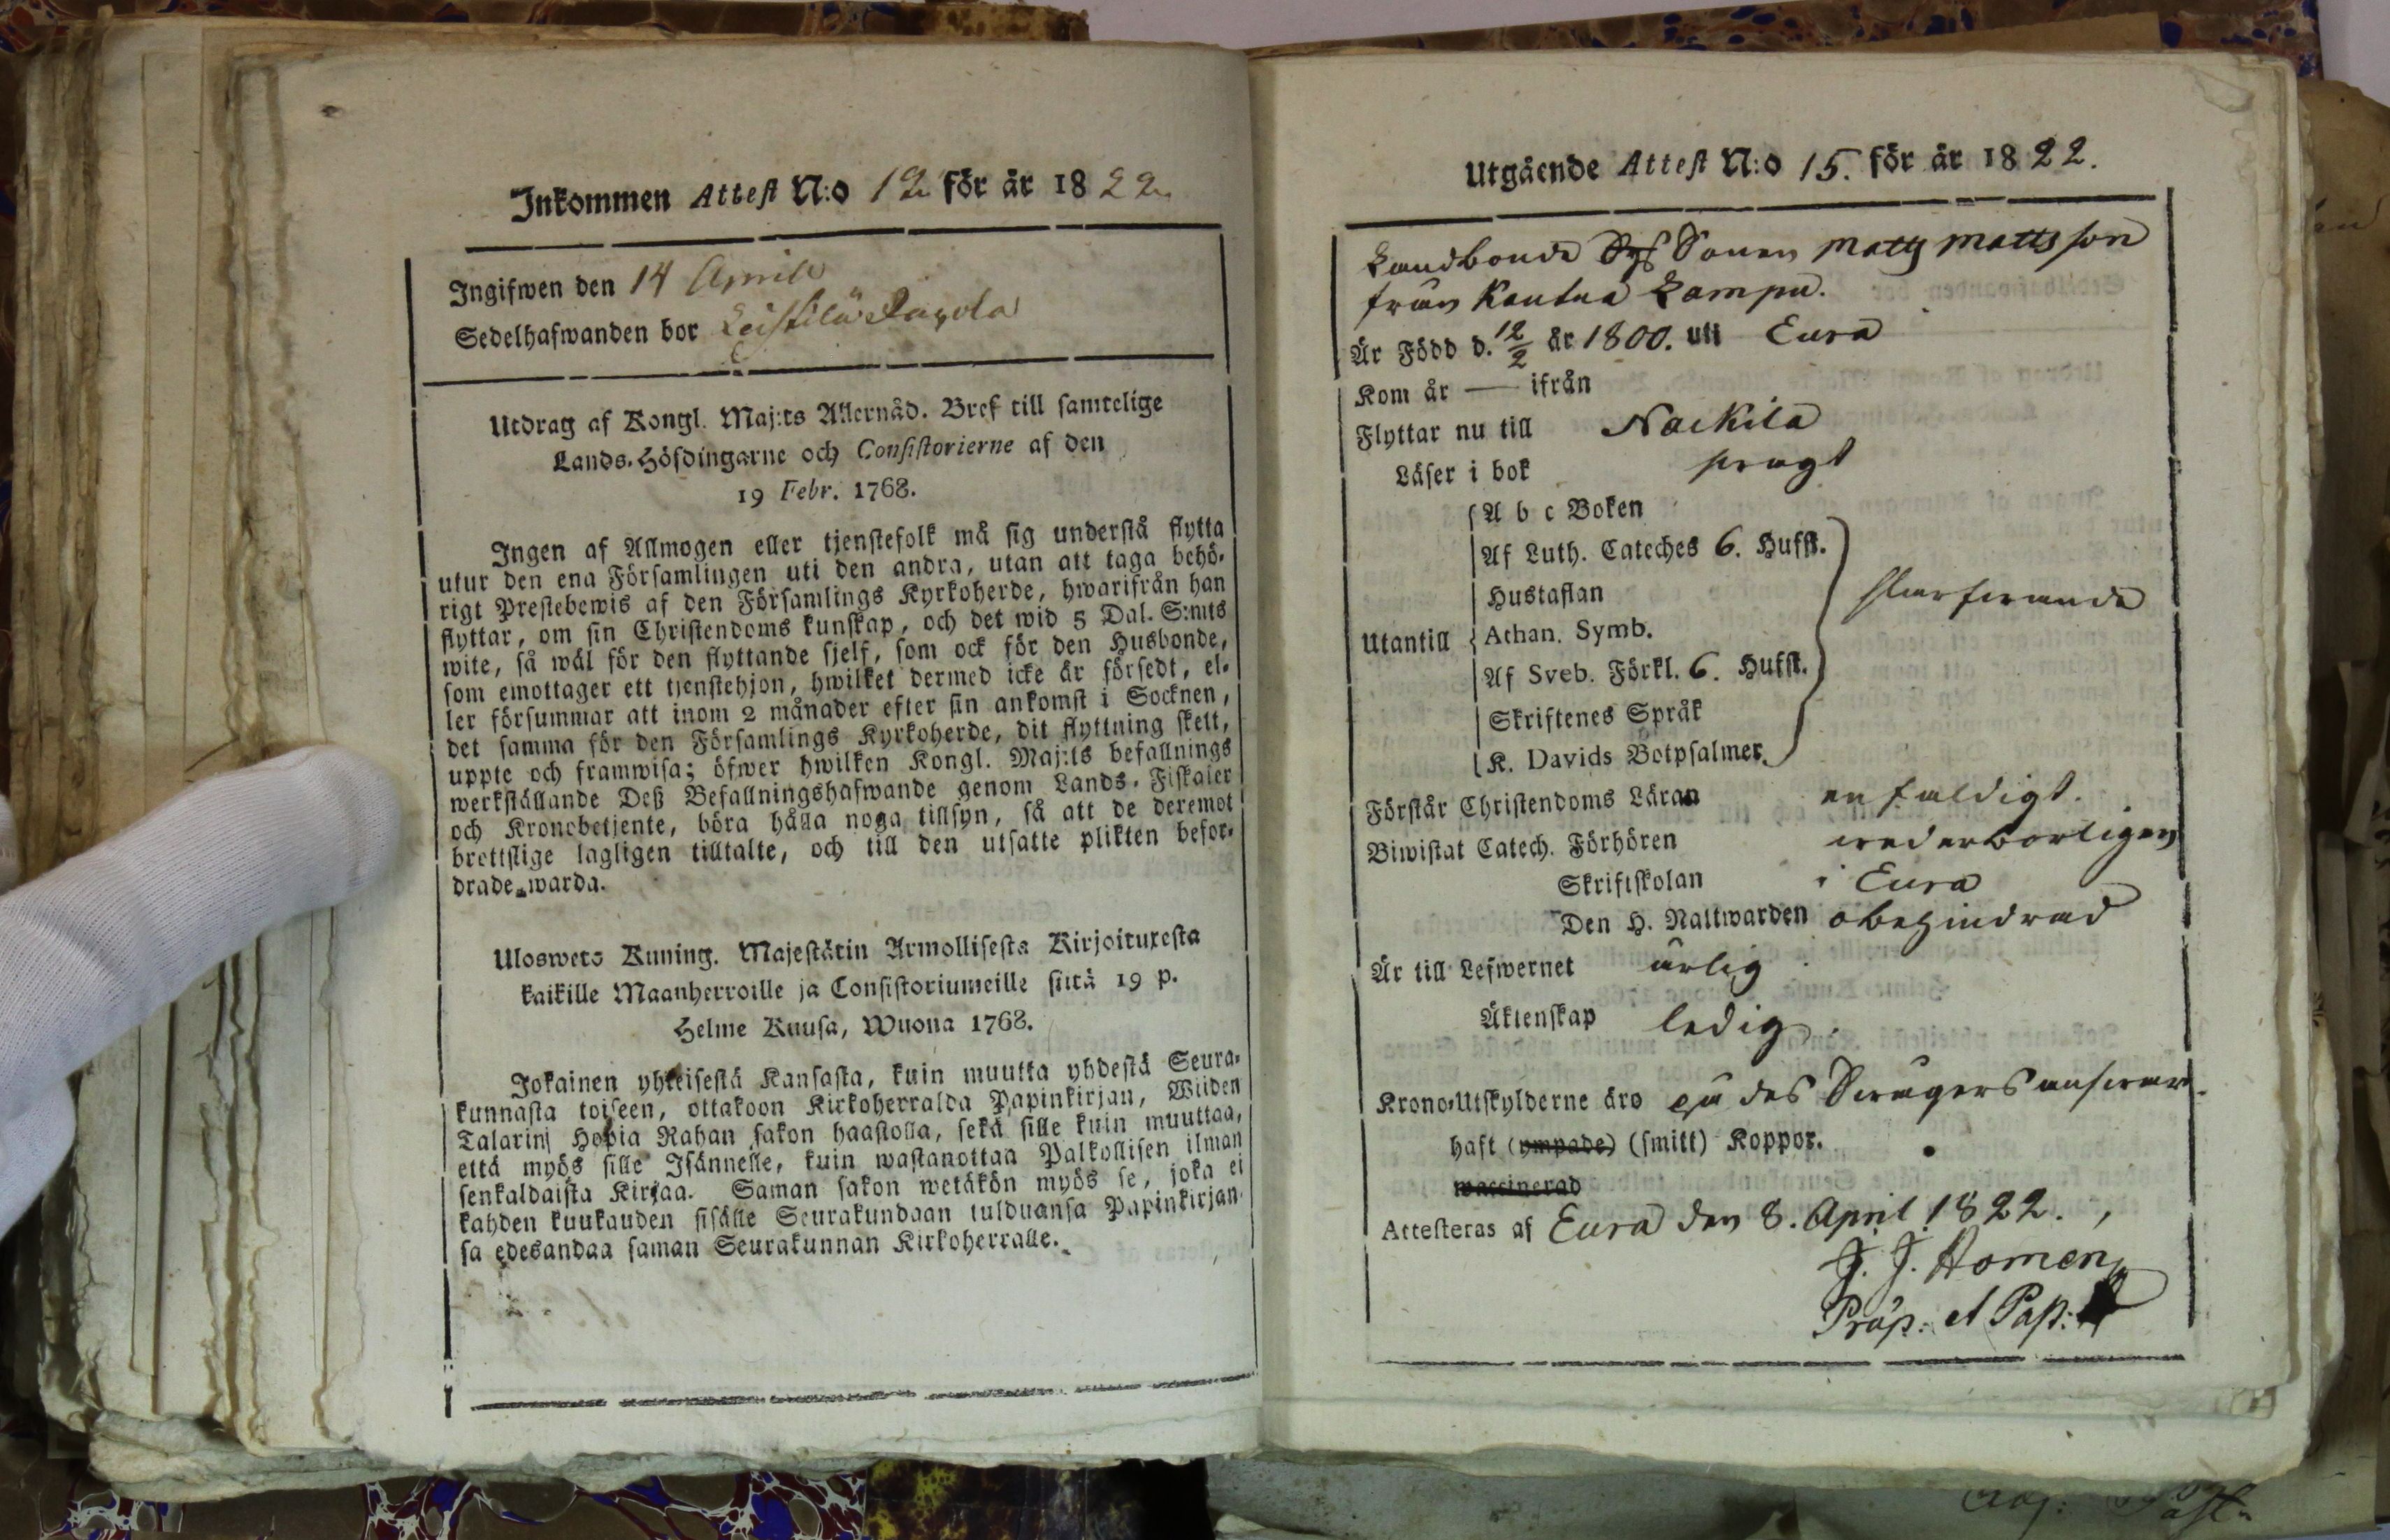 Inkommen Attest N:o 12 för år 1822.
Ingifwen den 14 April
Sedelhafwanden bor Leistilä
Utdrag af Kongl. Maj:ts Allernåd. Bref till samtelige
Lands-Höfdingarne och Consistorierne af den
19 Febr. 1768.
Ingen af Allmogen eller tjenstefolk må sig understå flytta
utur den ena Församlingen uti den andra, utan att taga behö-
rigt Prestebewis af den Församlings Kyrkoherde, hwarifrån han
flyttar, om sin Christendoms kunskap, och det wid 5 Dal. S:mts
wite, så wäl för den flyttande sjelf, som ock för den Husbonde,
som emottager ett tjenstehjon, hwilket dermed icke är försedt, el-
ler försummar att inom 2 månader efter sin ankomst i Socknen,
det samma för den Församlings Kyrkoherde, dit flyttning skett,
uppte och framwisa; öfwer hwilken Kongl. Maj:ts befallnings
werkställande Deß Befallningshafwande genom Lands-Fiskaler
och Kronobetjente, böra hålla noga tillsyn, så att de deremot
brottslige lagligen tilltalte, och till den utsatte plikten befor-
drade warda.
Ulosweto Kuning. Majestätin Armollisesta Kirjoituxesta
kaikille Maanherroille ja Consistoriumeille siitä 19 p.
Helme Kuusa, Wuona 1768.
Jokainen yhteisestä Kansasta, kuin muutta yhdestä Seura-
kunnasta toiseen, ottakoon Kirkoherralda Papinkirjan, Wiiden
Talarinj Hopia Rahan sakon haastolla, sekä sille kuin muuttaa,
että myös sille Isännelle, kuin wastanottaa Palkollisen ilman
senkaldaista Kirjaa. Saman sakon wetäkön myös se, joka ei
kahden kuukauden sisälle Seurakundaan tulduansa Papinkirjan-
sa edesandaa saman Seurakunnan Kirkoherralle.
Utgående Attest N:o 15. för år 1822.
Landbonde Sonen Matts Mattsson
från Kautua Lampu.
Är Född d. 12/2 år 1800. uti Eura
Kom år — ifrån
Flyttar nu till Nackila
Läser i bok svagt
Utantill
A b c Boken
Af Luth. Cateches 6. Hufst.
Hustaflan
Athan. Symb.
Af Sveb. Förkl. 6. Hufst.
Skriftenes Språk
K. Davids Botpsalmer.
Förstår Christendoms Läran enfaldigt.
Biwistat Catech. Förhören wederbörligen
Skriftskolan i Eura
Den H. Nattwarden obehindrad
Är till Lefwernet ärlig
Äktenskap ledig.
Krono-Utskylderne äro på des Swågers answar.
haft (ympade) (smitt) Koppor.
waccinerad
Attesteras af Eura den 8. April 1822.
J. J. Homen
Præp. et Past.